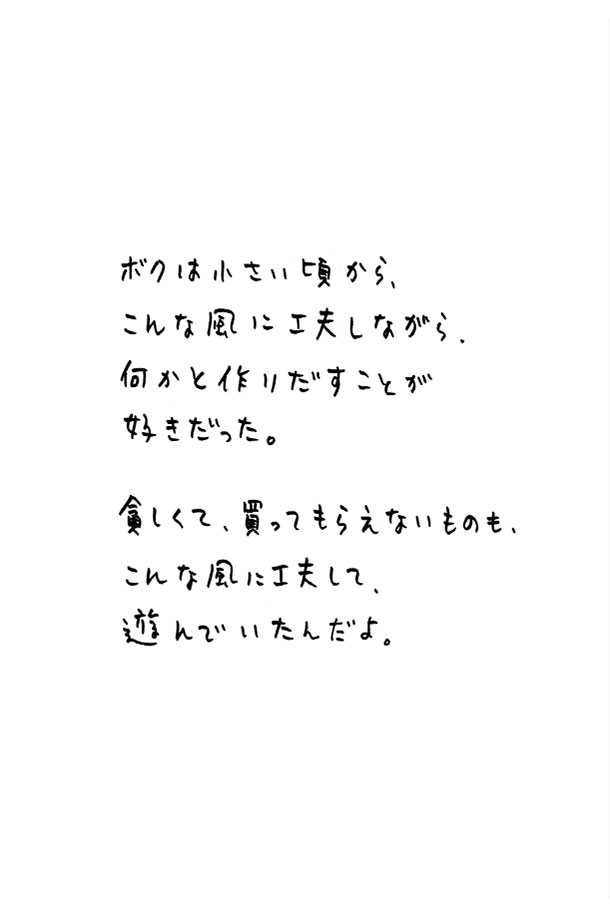 ボクは小さい頃から、
こんな風に工夫しながら、
何かと作りだすことが
好きだった。
貧しくて、買ってもらえないものも、
こんな風に工夫して、
遊んでいたんだよ。